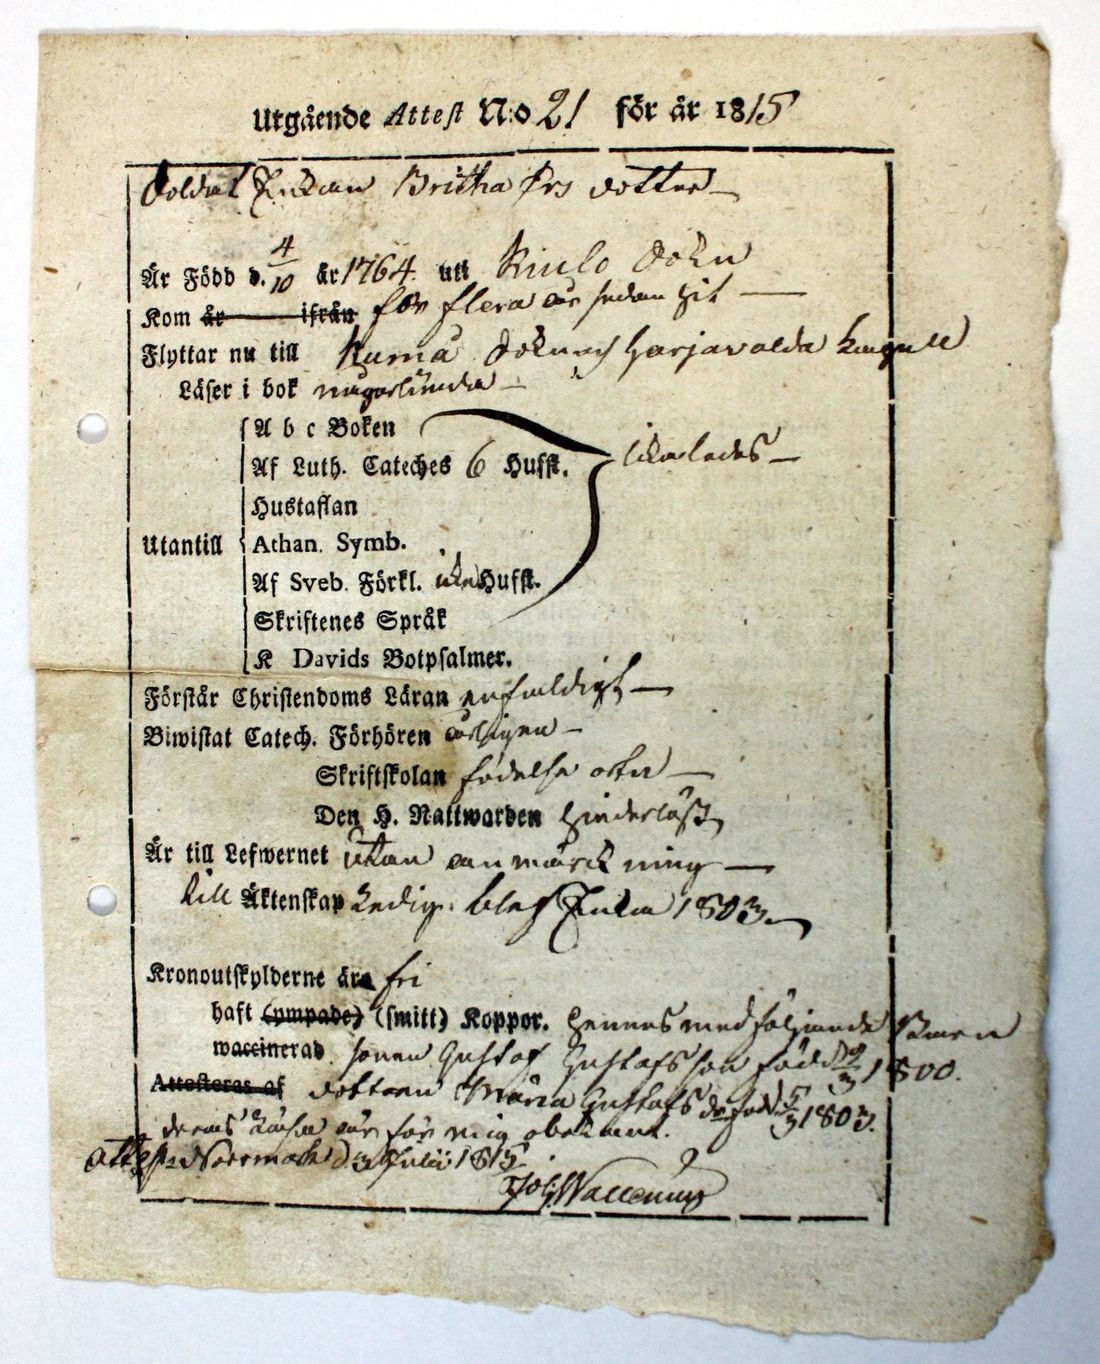 Utgående Attest N:o 21 för år 1815
Soldat Enkan Britha Ers dotter
Är Född d. 4/10 år 1764 uti Kiulo Sokn
Kom år ifrån för flera år sedan hit
Flyttar nu till Kumå Sokn och Harjavalda Capell
Läser i bok någorlunda
A b c Boken
Af Luth. Cateches 6 Hufst. likaledes
Hustaflan
Utantill Athan. Symb.
Af Sveb. Förkl. icke Hufst.
Skriftenes Språk
K Davids Botpsalmer.
Förstår Christendoms Läran enfaldigt
Biwistat Catech. Förhören årligen
Skriftskolan födelse orten
Den H. Nattwarden hinderlöst
Är till Lefwernet utan anmärckning
till Äktenskap Ledig. blef Enka 1803
Kronoutskylderne äro fri
haft (ympade) (smitt) Koppor. hennes medföljande Barn
waccinerad sonen Gustaf Gustafsson född 1800.
Attesteras af dottern Maria Gustafs dr född 5/3 1803.
deras är för mig obekant.
Attest. Norrmark d 3 Julii 1815.
Joh Wallenius